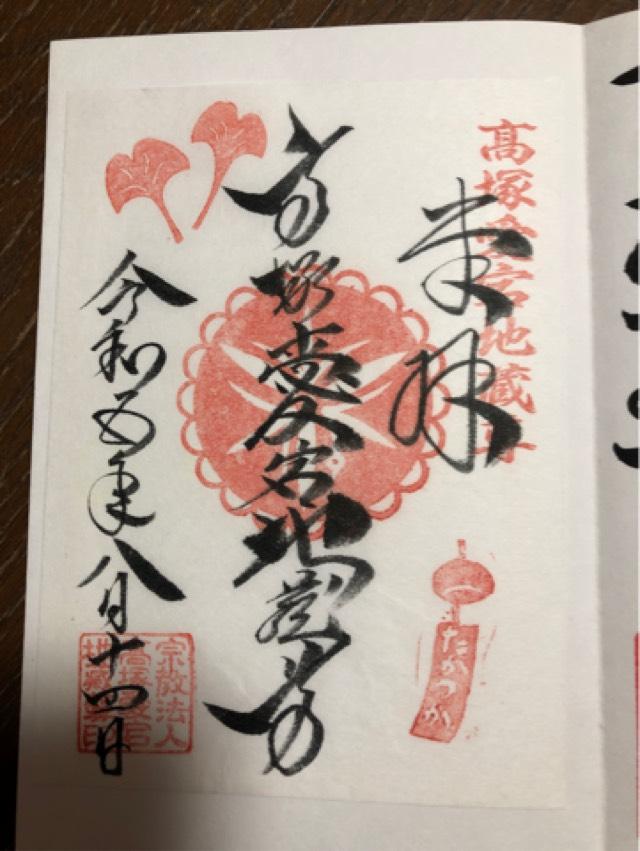 高塚愛宕地蔵尊
奉拝
高塚愛宕地蔵尊
令和五年八月十四日
たかつか
宗教法人